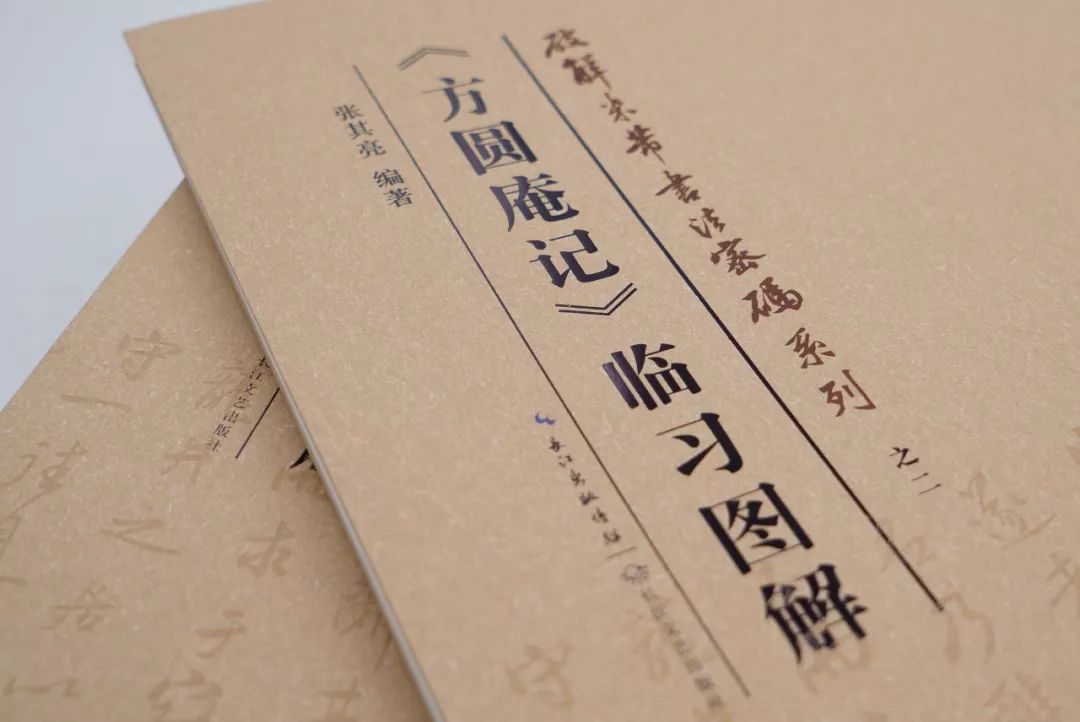 破解米芾书法密碼系列 之二
《方圆庵记》临习图解
张其亮 编著
长江出版传媒
长江文艺出版社
长江文艺出版社